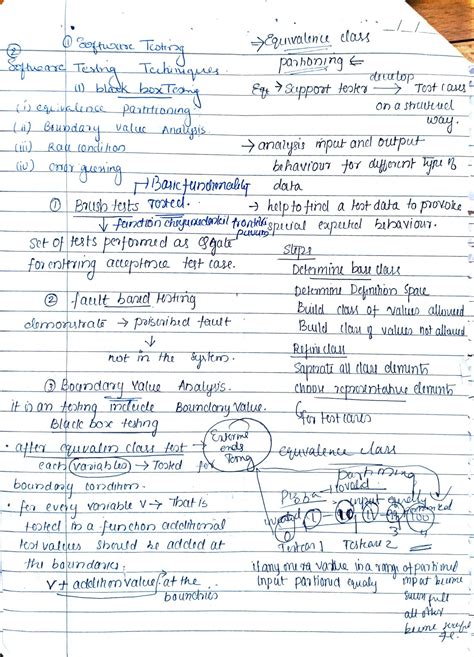 ① Software Testing
②
Software Testing Techniques.
(1) black box Teang
(i) equivalence partitioning.
(ii) Boundary value Analysis
(iii) Race condition
(iv) error guessing
→ Basic functionality
① Brush tests Tosted.
set of tests performed as
for entring acceptence test case.
② fault based testing
demonstrate → priscribed fault
not in the system.
③ Boundary Value Analysis.
it is an testing include Boundary Value.
Black box testing
• after equivalen class test
each variables → Tosted for
Extreme ends
boundary condition.
• for every variable V → That is
tosted in a function additional
test values should be added at
the boundaries.
V + addition value at the
boundries
→ Equivalence class
partioning ←
→ Support tester → Test cases
develop
on a structured
way.
→ analysis input and output
behaviour for different type of
data
→ help to find a test data to provoke
special expected behaviour.
Steps
Determine base class
Determine Definition Space
Build class of values allowed
Build class of values not allowed
Refine class
Seperate all class elements
choose representative elements
for test cases
equivalence class
partioning
① 10 11 100
0
Testcase 1 Testcase 2
If any one value in a range of partional
input partioned equaly
input
all other